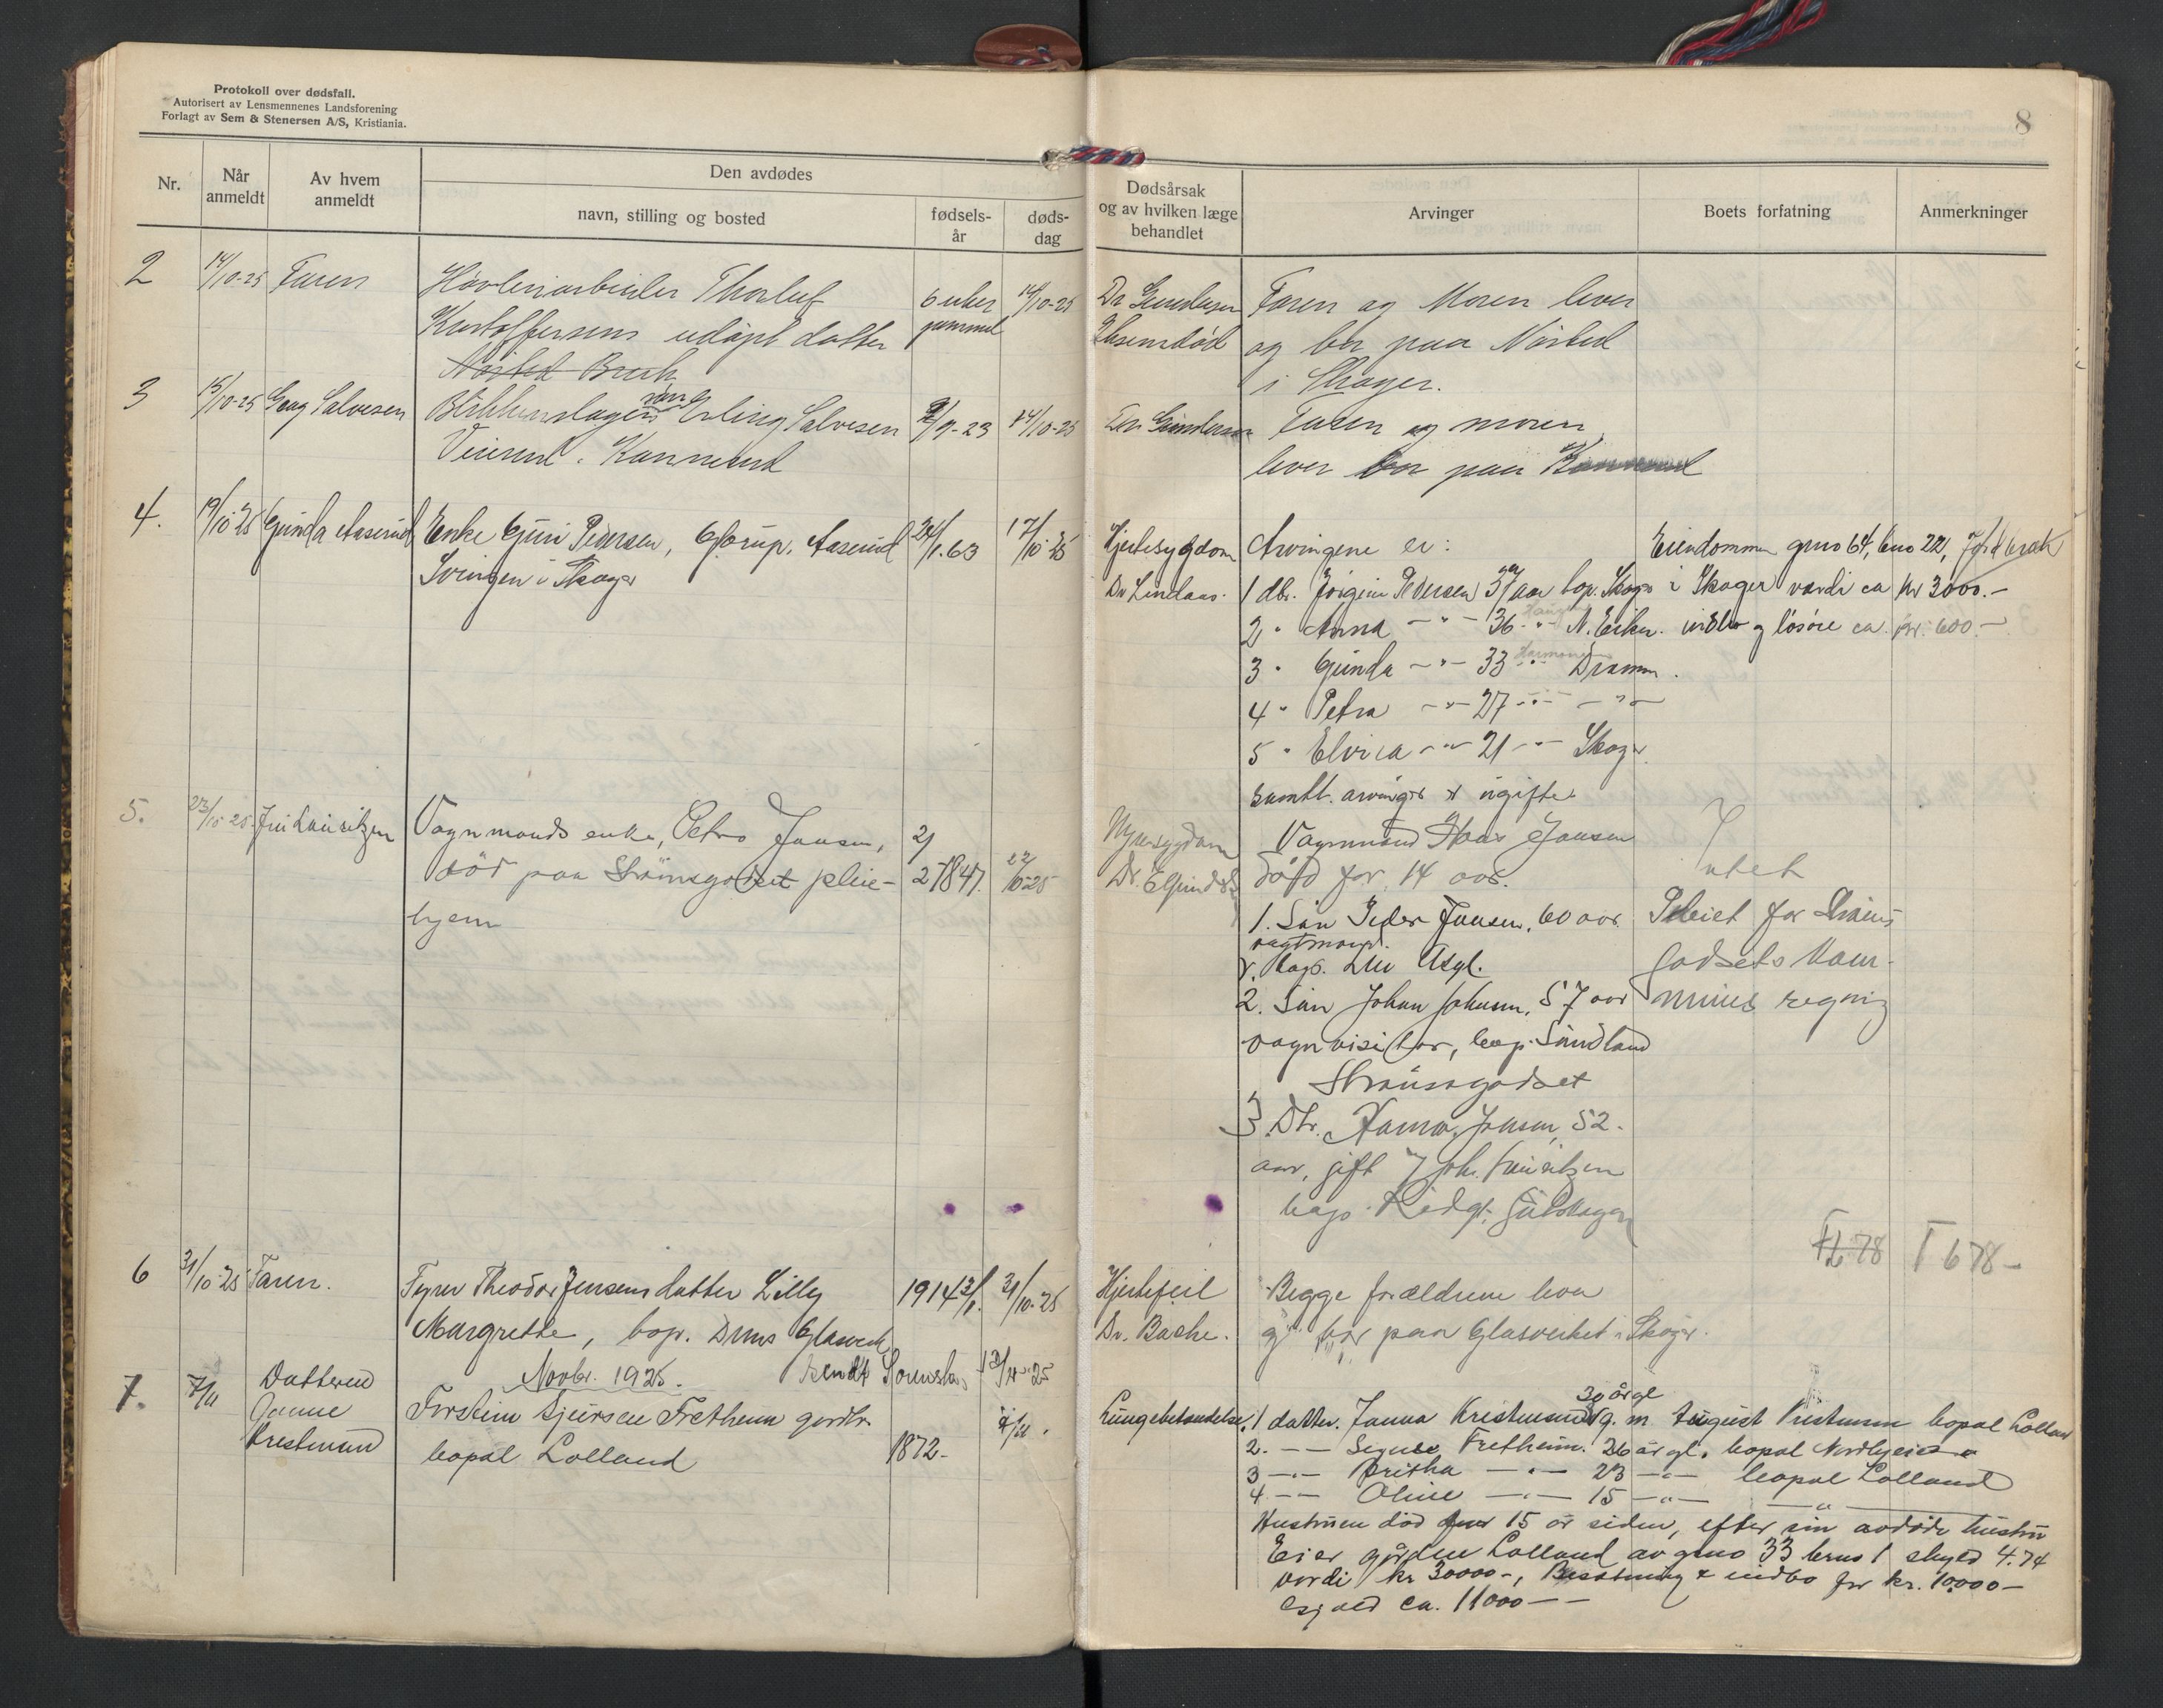 Protokoll over dødsfall.
Autorisert av Lensmennenes Landsforening
Forlagt av Sem & Stenersen A/S, Kristiania.
8
Nr.
Når anmeldt
Av hvem anmeldt
Den avdødes
navn, stilling og bosted
fødsels-år
døds-dag
Dødsårsak og av hvilken læge behandlet
Arvinger
Boets forfatning
Anmerkninger
2 14/10-25 Faren
Høvleriarbeider Thorluf
Kristoffersens udøpt datter
Nøsted Bruk
6 uker gammel
14/10-25
Dr Gundersen
Faren og Moren lever
og bor paa Nøsted
i Skoger.
3 15/10-25 Georg Salvesen
Blikkenslagers søn Erling Salvesen
9-23
14/10-25
Dr. Gundersen
Faren og moren
lever bor paa
4. 19/10 25 Gunda Aaserud
Enke Guri Pedersen, Aaserud
Svingen i Skoger
24/1.63
17/10-25
Hjertesygdom
Dr Lindaas.
Arvingene er:
1 dtr. Jørgine Pedersen 37 aar bop. Skoger
2 " Anna - " - 36 - " - N. Eiker.
3 " Gunda - " - 33 - " - Dramm.
4 " Petra - " - 27 - " - - " -
5 " Elvira - " - 21 - " - Skoger
samtl. arvinger er ugifte
Eiendommen gnr 64, bno 22,
i Skoger værdi ca kr 3000.-
indbo og løsøre ca. kr. 600.-
5. 23/10-25. Fru Lauritzen
Vognmands enke, Petra Jansen,
död paa Strömsgodset pleie-
hjem
2/2 1847.
22/10-25
Nyresygdom
Vognmand Jansen
död for 14 aar.
1. Sön Peder Jansen, 60 aar
vagtmand.
2. Sön Johan Johansen, 57 aar
vognvisitør, bop. Sundland
Strömsgodset
3. Dtr. Hanna Jansen, 52
aar, gift Joh. Lauritzen
bop.
Intet
Pleiet for Ströms
godsets Kom-
munes regning
678-
6 31/10 25 Faren.
Fyrer Theodor Jensens datter Lilly
Margrethe, bop. Drms Glasverk
1914
31/10-25
Hjertefeil
Dr. Bache.
Begge forældrene leva
og bor paa Glasverket i Skoger.
Novbr. 1925.
7. 7/11
Datteren
Kristensen
Torstein Sjursen Fretheim gardbr.
bopal Lolland
1872-
4/11.
Lungebetendelse
30 årgl
1 datter. Janna Kristensen g. m. August Kristensen bopal Lolland
2. - - Fretheim. 26 år gl. bopal
3 - " - - " - 23 - " - bopal Lolland
4. - - Oline - " - 15 - " - - " -
Hustruen död for 15 år siden, efter sin avdöde hustru
Eier gården Lolland av gno 33 brno 1 skyld 4.74
verdi kr 30000-, Besetning & indbo for kr. 10000-
Gjæld ca. 11000--